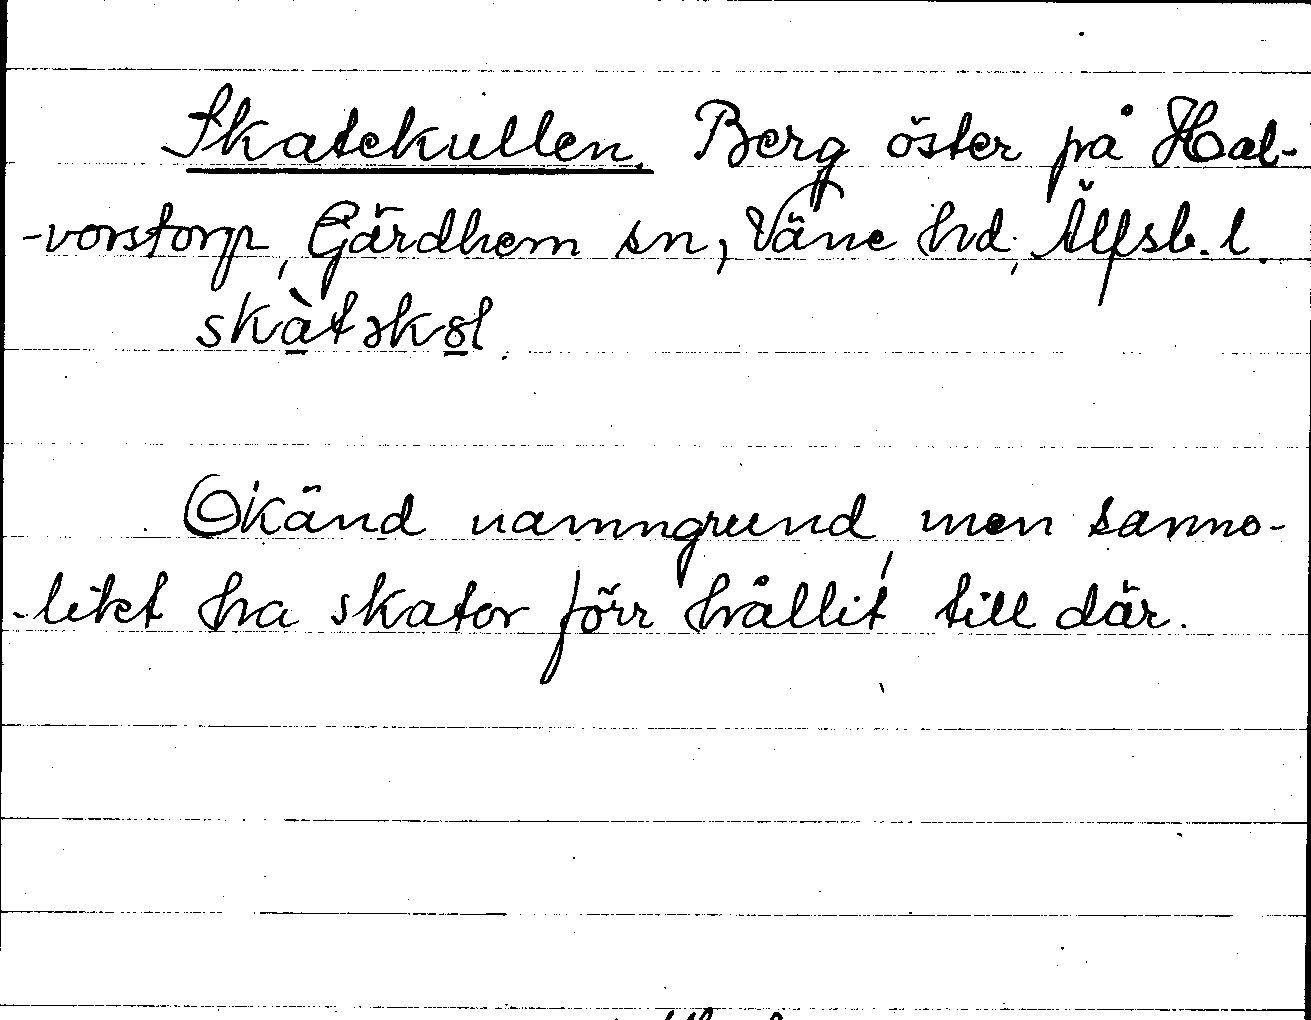 Skatekullen. Berg öster på Hal-
-vorstorp, Gärdhem sn, Väne hd, Älfsb. l.
skàtəkȯl.
Okänd namngrund, men sanno-
-likt ha skator förr hållit till där.